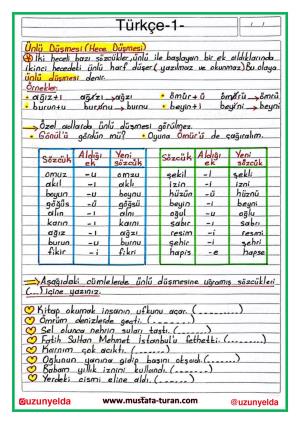 Türkçe -1-
Ünlü Düşmesi (Hece Düşmesi)
İki heceli bazı sözcükler, ünlü ile başlayan bir ek aldıklarında
ikinci hecedeki ünlü harf düşer (yazılmaz ve okunmaz). Bu olaya
ünlü düşmesi denir.
Örnekler:
• ağız+ı ağızı → ağzı • ömür+ü ömürü → ömrü
• burun+u burunu → burnu • beyin+i beyini → beyni
→ Özel adlarda ünlü düşmesi görülmez.
• Gönül'ü gördün mü? • Oyuna Ömür'ü de çağıralım.
Sözcük Aldığı ek Yeni sözcük Sözcük Aldığı ek Yeni sözcük
omuz -u omzu şekil -i şekli
akıl -ı aklı izin -i izni
boyun -u boynu hüzün -ü hüznü
göğüs -ü göğsü beyin -i beyni
alın -ı alnı oğul -u oğlu
karın -ı karnı sabır -ı sabrı
ağız -ı ağzı resim -i resmi
burun -u burnu şehir -i şehri
fikir -i fikri hapis -e hapse
→ Aşağıdaki cümlelerde ünlü düşmesine uğramış sözcükleri
(...) içine yazınız.
Kitap okumak insanın ufkunu açar. (........)
Ömrüm denizlerde geçti. (........)
Sel olunca nehrin suları taştı. (........)
Fatih Sultan Mehmet İstanbul'u fethetti. (........)
Karnım çok acıktı. (........)
Oğlunun yanına gidip başını okşadı. (........)
Babam yıllık iznini kullandı. (........)
Yerdeki cismi eline aldı. (........)
@uzunyelda www.mustafa-turan.com @uzunyelda